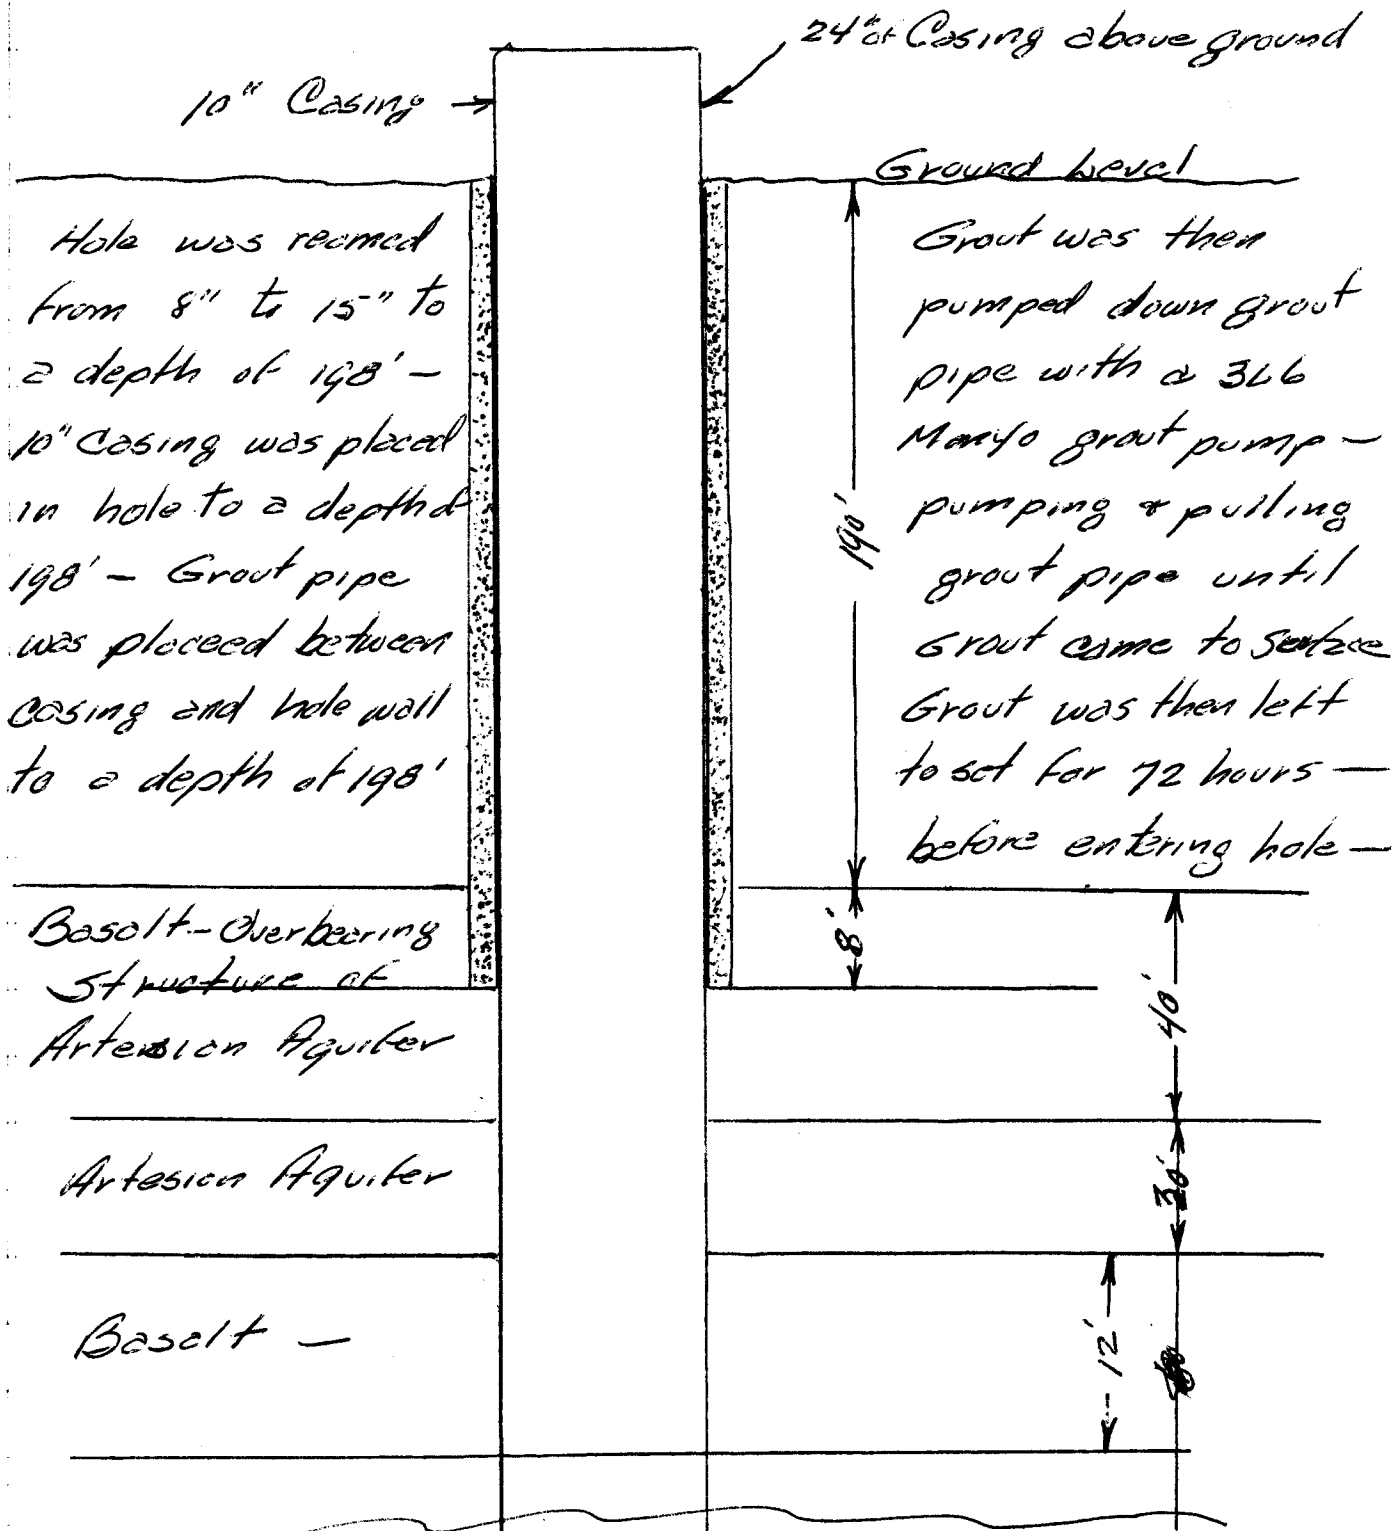 24" of Casing above ground
10" Casing
Ground Level
Hole was reamed
from 8" to 15" to
a depth of 198' –
10" Casing was placed
in hole to a depth of
198' – Grout pipe
was placeed between
casing and hole wall
to a depth of 198'
Grout was then
pumped down grout
pipe with a 3L6
Moryo grout pump –
pumping & pulling
grout pipe until
Grout came to surface
Grout was then left
to set for 72 hours –
before entering hole –
190'
8'
40'
30'
12'
Basalt – Overbearing
Structure of
Artesian Aquifer
Artesian Aquifer
Basalt –